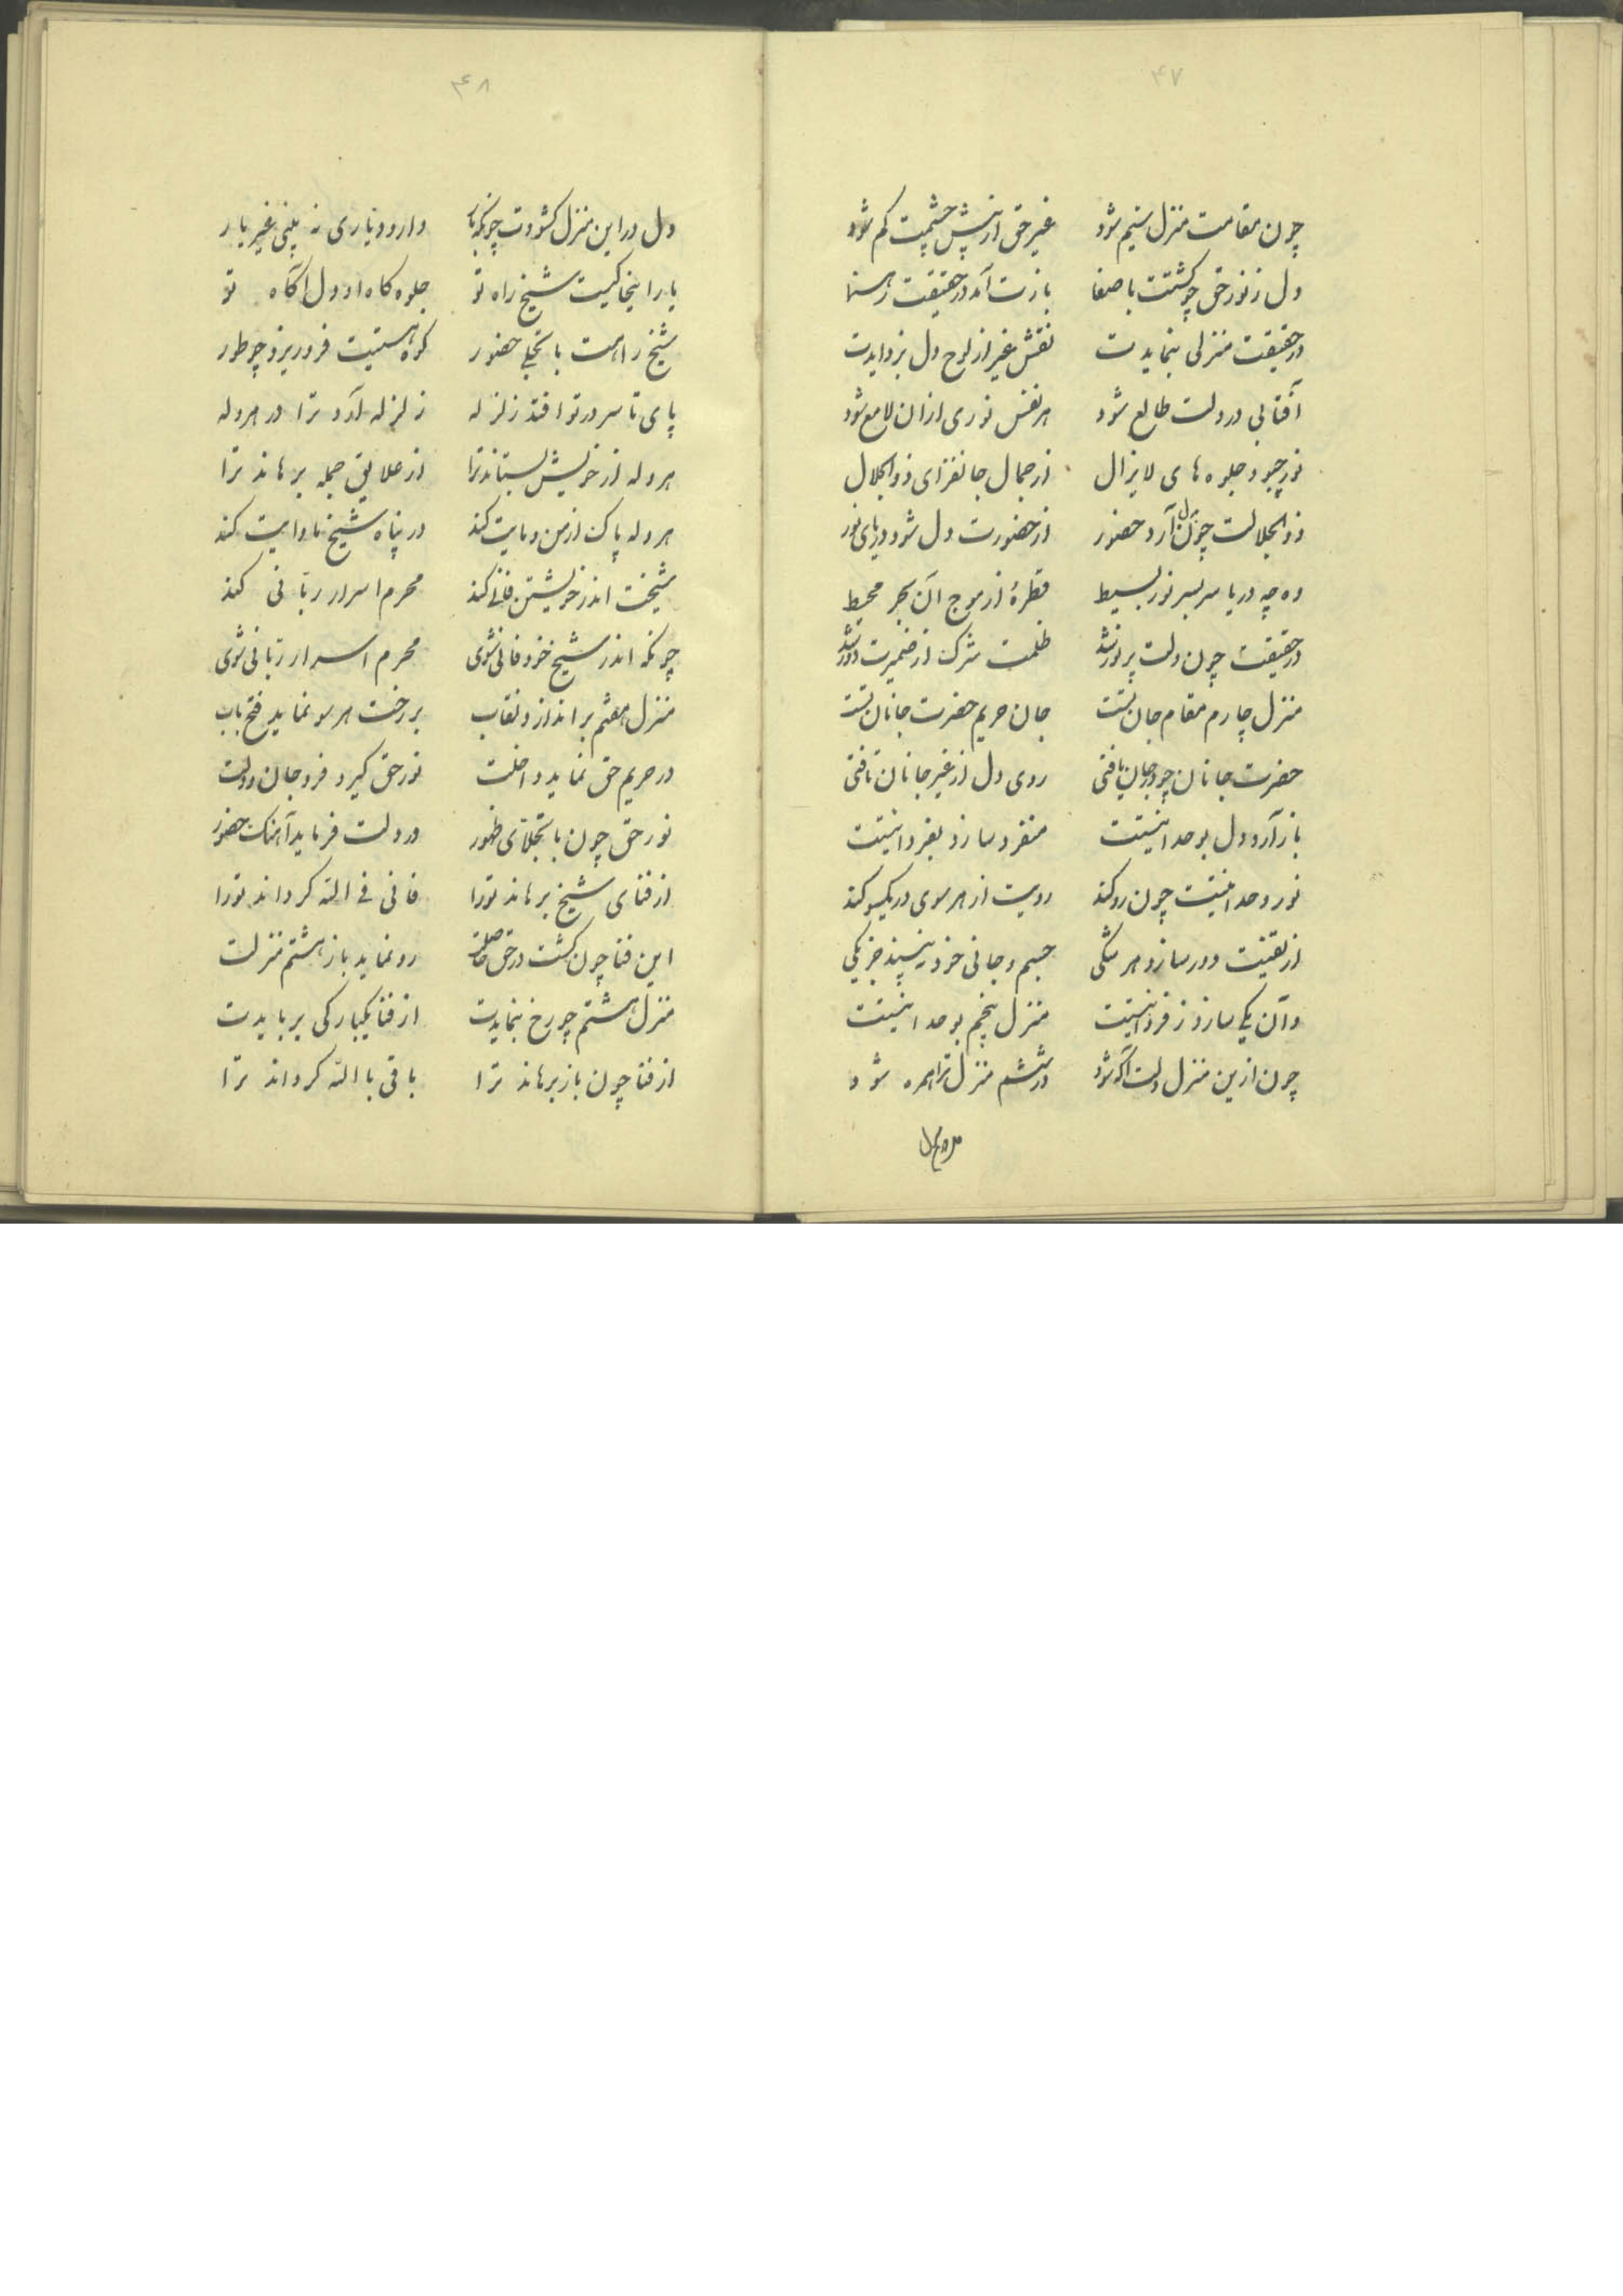 ۴۷
چون مقامت منزل سیم شود غیر حق از پیش چشمت کم شود
دل ز نور حق چو گشتت باصفا بازت آمد در حقیقت رهنما
در حقیقت منزلی بنمایدت نقش غیر از لوح دل بزدایدت
آفتابی در دلت طالع شود هر نفس نوری ازان لامع شود
نور چبود جلوه‌های لایزال از جمال جانفزای ذوالجلال
ذوالجلالت چون بدل آرد حضور از حضورت دل شود دریای نور
وه چه دریا سربسر نور بسیط قطرهٔ از موج آن بحر محیط
در حقیقت چون دلت پرنور شد ظلمت شرک از ضمیرت دور شد
منزل چارم مقام جان تست جان حریم حضرت جانان تست
حضرت جانان چو در جان یافتی روی دل از غیر جانان تافتی
باز آرد دل بوحدانیتت منفرد سازد بفردانیتت
نور وحدانیتت چون رو کند رویت از هر سوی در یکسو کند
از یقینت دور سازد هر شکی جسم و جانی خود نبیند جز یکی
وآن یکی سازد ز فردانیتت منزل پنجم بوحدانیتت
چون ازین منزل دلت آگه شود در ششم منزل ترا همره شود
۴۸
دل در این منزل گشودت چونکه بار وارد و یاری نه بینی غیر یار
یار اینجا کیست شیخ راه تو جلوه‌گاه او دل آگاه تو
شیخ راهت با تجلی حضور کوه هستیت فرو ریزد چو طور
پای تا سر در تو افتد زلزله زلزله آرد ترا در هروله
هروله از خویش بستاند ترا از علایق جمله برهاند ترا
هروله پاک از من و مایت کند در پناه شیخ ماوایت کند
شیخت اندر خویشتن فانی کند محرم اسرار ربانی کند
چونکه اندر شیخ خود فانی شوی محرم اسرار ربانی شوی
منزل هفتم براندازد نقاب بر رخت هر سو نماید فتح باب
در حریم حق نماید داخلت نور حق گیرد فرو جان و دلت
نور حق چون با تجلای ظهور در دلت فرماید آهنگ حضور
از فنای شیخ برهاند تورا فانی فی الله گرداند تورا
این فنا چون گشت در حق حاصلت رو نماید باز هشتم منزلت
منزل هشتم چو رخ بنمایدت از فنا یکبارگی بربایدت
از فنا چون باز برهاند ترا باقی باالله گرداند ترا